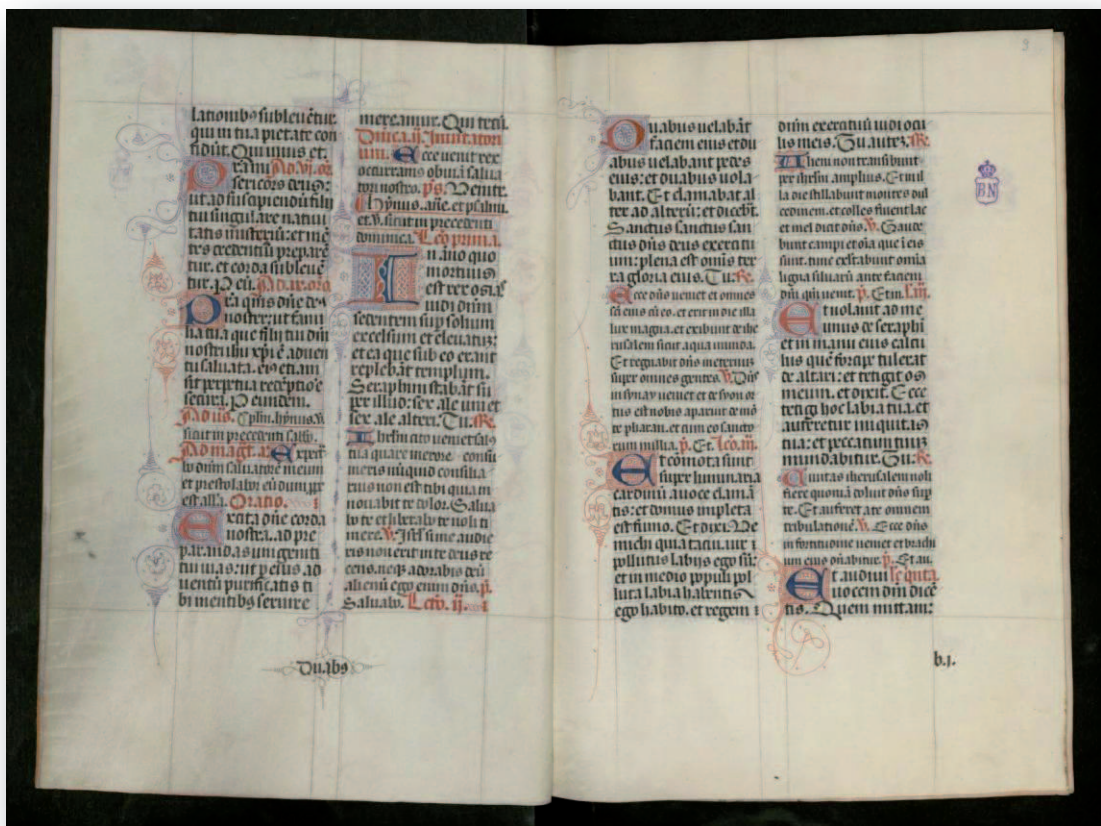 lationibꝯ subleuẽtur
qui in tua pietate con
fidũt. Qui uiuis et.
Prami Ad .vi. or.
sericors deus:
ut ad suscipiendũ filii
tui singulare natiui
tatis misteriũ: et mẽ
tes credentiũ preparẽ
tur. et corda subleuẽ
tur. P eũ. Ad .ix. oro
Pra q̃ms dñe de
noster: ut fami
lia tua que filii tui dñi
nostri ihũ xp̃i ẽ aduen
tu saluata. eiꝯ etiam
sit perpetua receptioẽ
secura. P eundem.
Ad us. psm. hymus. ꝟ
sicut in precedenti sabb.
Ad magt. a. Expect
bo dñm saluatorẽ meum
et prestolabor eũ dum ꝓpe
est all'a. Oratio.
Excita dñe corda
nostra. ad pre
parandas unigeniti
tui uias: ut p eius ad
uentũ purificatis ti
bi mentibꝯ seruire
mereamur. Qui tecũ.
Dñica .ij. Inuitatori
um. Ecce uenit rex
occurramꝯ obuiã salua
tori nostro. ps. Venite.
Hymus. añe. et psalmi.
et. ꝟ. sicut in precedenti
dominica. Lc̃o prima.
In ãno quo
mortuus
est rex osias
uidi dñm
sedentem sup solium
excelsum et eleuatũ:
et ea que sub eo erant
replebãt templum.
Seraphin stabãt su
per illud: sex ale uni et
sex ale alteri. Tu. ℟.
Iherlm cito ueniet salꝯ
tua quare merore consu
meris nũquid consilia
rius non est tibi quia in
nouabit te dolor. Salua
bo te et liberabo te noli ti
mere. ꝟ. Isrl si me audie
ris non erit in te deus re
cens. neqꝫ adorabis deũ
alienũ ego enim dñs. p.
Saluabo. Lctõ. ij.
Duabꝯ
Duabus uelabãt
faciem eius et du
abus uelabant pedes
eius: et duabus uola
bant. Et clamabat al
ter ad alterũ: et dicebt.
Sanctus sanctus san
ctus dñs deus exercitu
um: plena est omĩs ter
ra gloria eius. Tu. ℟.
Ecce dñs ueniet et omnes
sc̃i eius cũ eo. et erit in die illa
lux magna. et exibunt de ihe
rusalem sicut aqua munda.
Et regnabit dñs in eternuꝫ
super omnes gentes. ꝟ. Dñs
in synay ueniet et de syon or
tus est nobis apparuit de mõ
te pharan. et cum eo sancto
rum millia. p. Et. Lc̃o. iij.
Et cõmota sunt
super luminaria
cardinũ a uoce clamã
tis: et domus impleta
est fumo. Et dixi. Ve
michi quia tacui. uir ĩ
pollutus labijs ego sũ:
et in medio populi pol
luta labia habentis
ego habito. et regem
dñm exercituũ uidi ocu
lis meis. Tu. auteꝫ. ℟.
Iherlm non transibunt
per iherlm amplius. Et in il
la die stillabunt montes dul
cedinem. et colles fluent lac
et mel dicit dñs. ꝟ. Gaude
bunt campi et oĩa que ĩ eis
sunt. tunc exultabunt omĩa
ligna siluarũ ante faciem
dñi quia uenit. p. Et in. L. iiij.
Et uolauit ad me
unus de seraphi
et in manu eius calcu
lus quẽ forcipe tulerat
de altari: et tetigit os
meum. et dixit. Ecce
tetigi hoc labia tua. et
auferetur iniquitas
tua: et peccatum tuũ
mundabitur. Tu. ℟.
Ciuitas iherusalem noli
flere quoniã doluit dñs sup
te. Et auferet a te omnem
tribulationẽ. ꝟ. Ecce dñs
in fortitudine ueniet et brachi
um eius dñabitur. p. Et au.
Et audiui lc̃ quĩta
uocem dñi dicẽ
tis. Quem mittam:
b.j.
BN